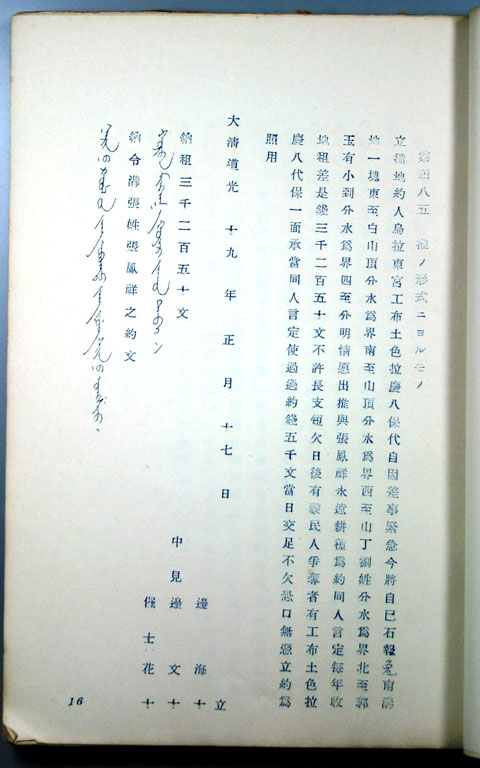 第四八五　推ノ形式ニヨルモノ
立推地約人烏拉東宮工布土色拉慶八保代自因差事緊急今將自已石報兔南溝
地一塊東至白山頂分水爲界南至山頂分水爲界西至山丁劉姓分水爲界北至郭
玉有小到分水爲界四至分明情愿出推與張鳳祥永遠耕種爲約同人言定每年收
地租差是錢三千二百五十文不許長支短欠日後有蒙民人爭奪者有工布土色拉
慶八代保一面承當同人言定使過過約錢五千文當日交足不欠恐口無憑立約爲
照用
大淸道光十九年正月十七日
立
納租三千二百五十文
納令溝張姓張鳳祥之約文
邊海十
中見邊文十
催士花十
16